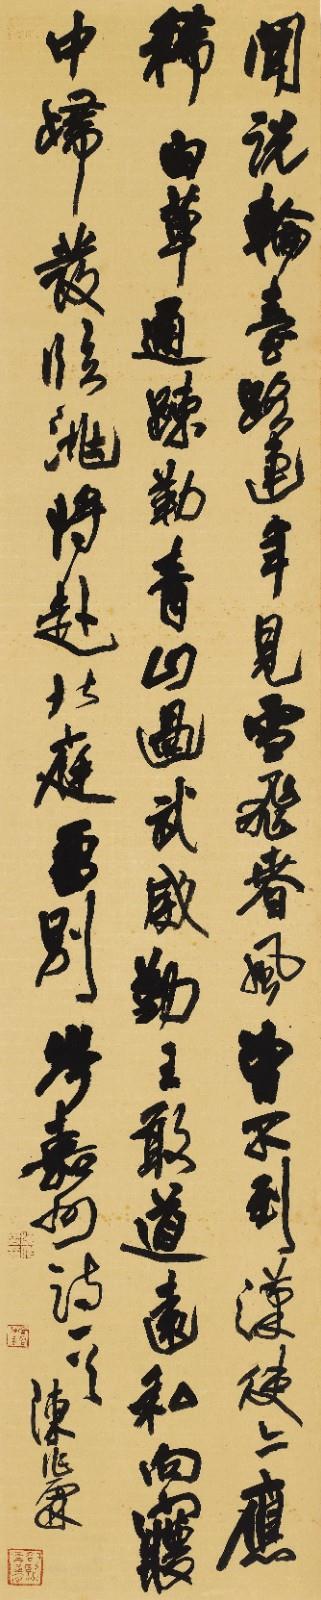 聞說輪臺路連年見雪飛春風曾不到漢使亦應
稀白草通疎勒青山過武威勤王敢道遠私向夢
中歸發臨洮將赴北庭留別岑嘉州詩一首陳作霖